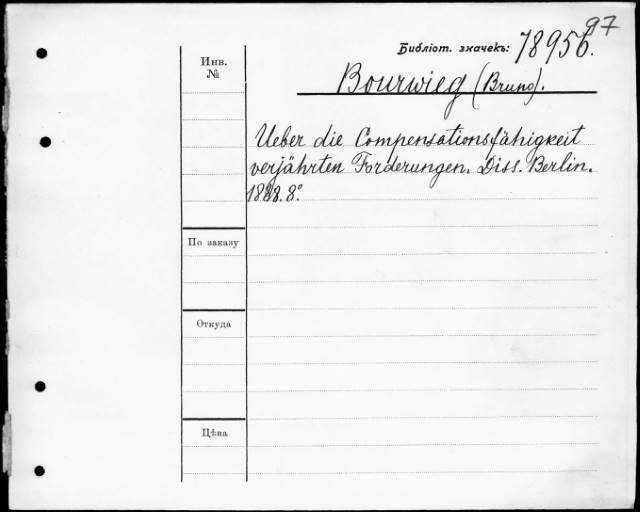 97
Библіот. значекъ: 78956.
Инв.
№
Bourwieg (Bruno).
Ueber die Compensationsfähigkeit
verjährten Forderungen. Diss. Berlin.
1888. 8°
По заказу
Откуда
Цѣна